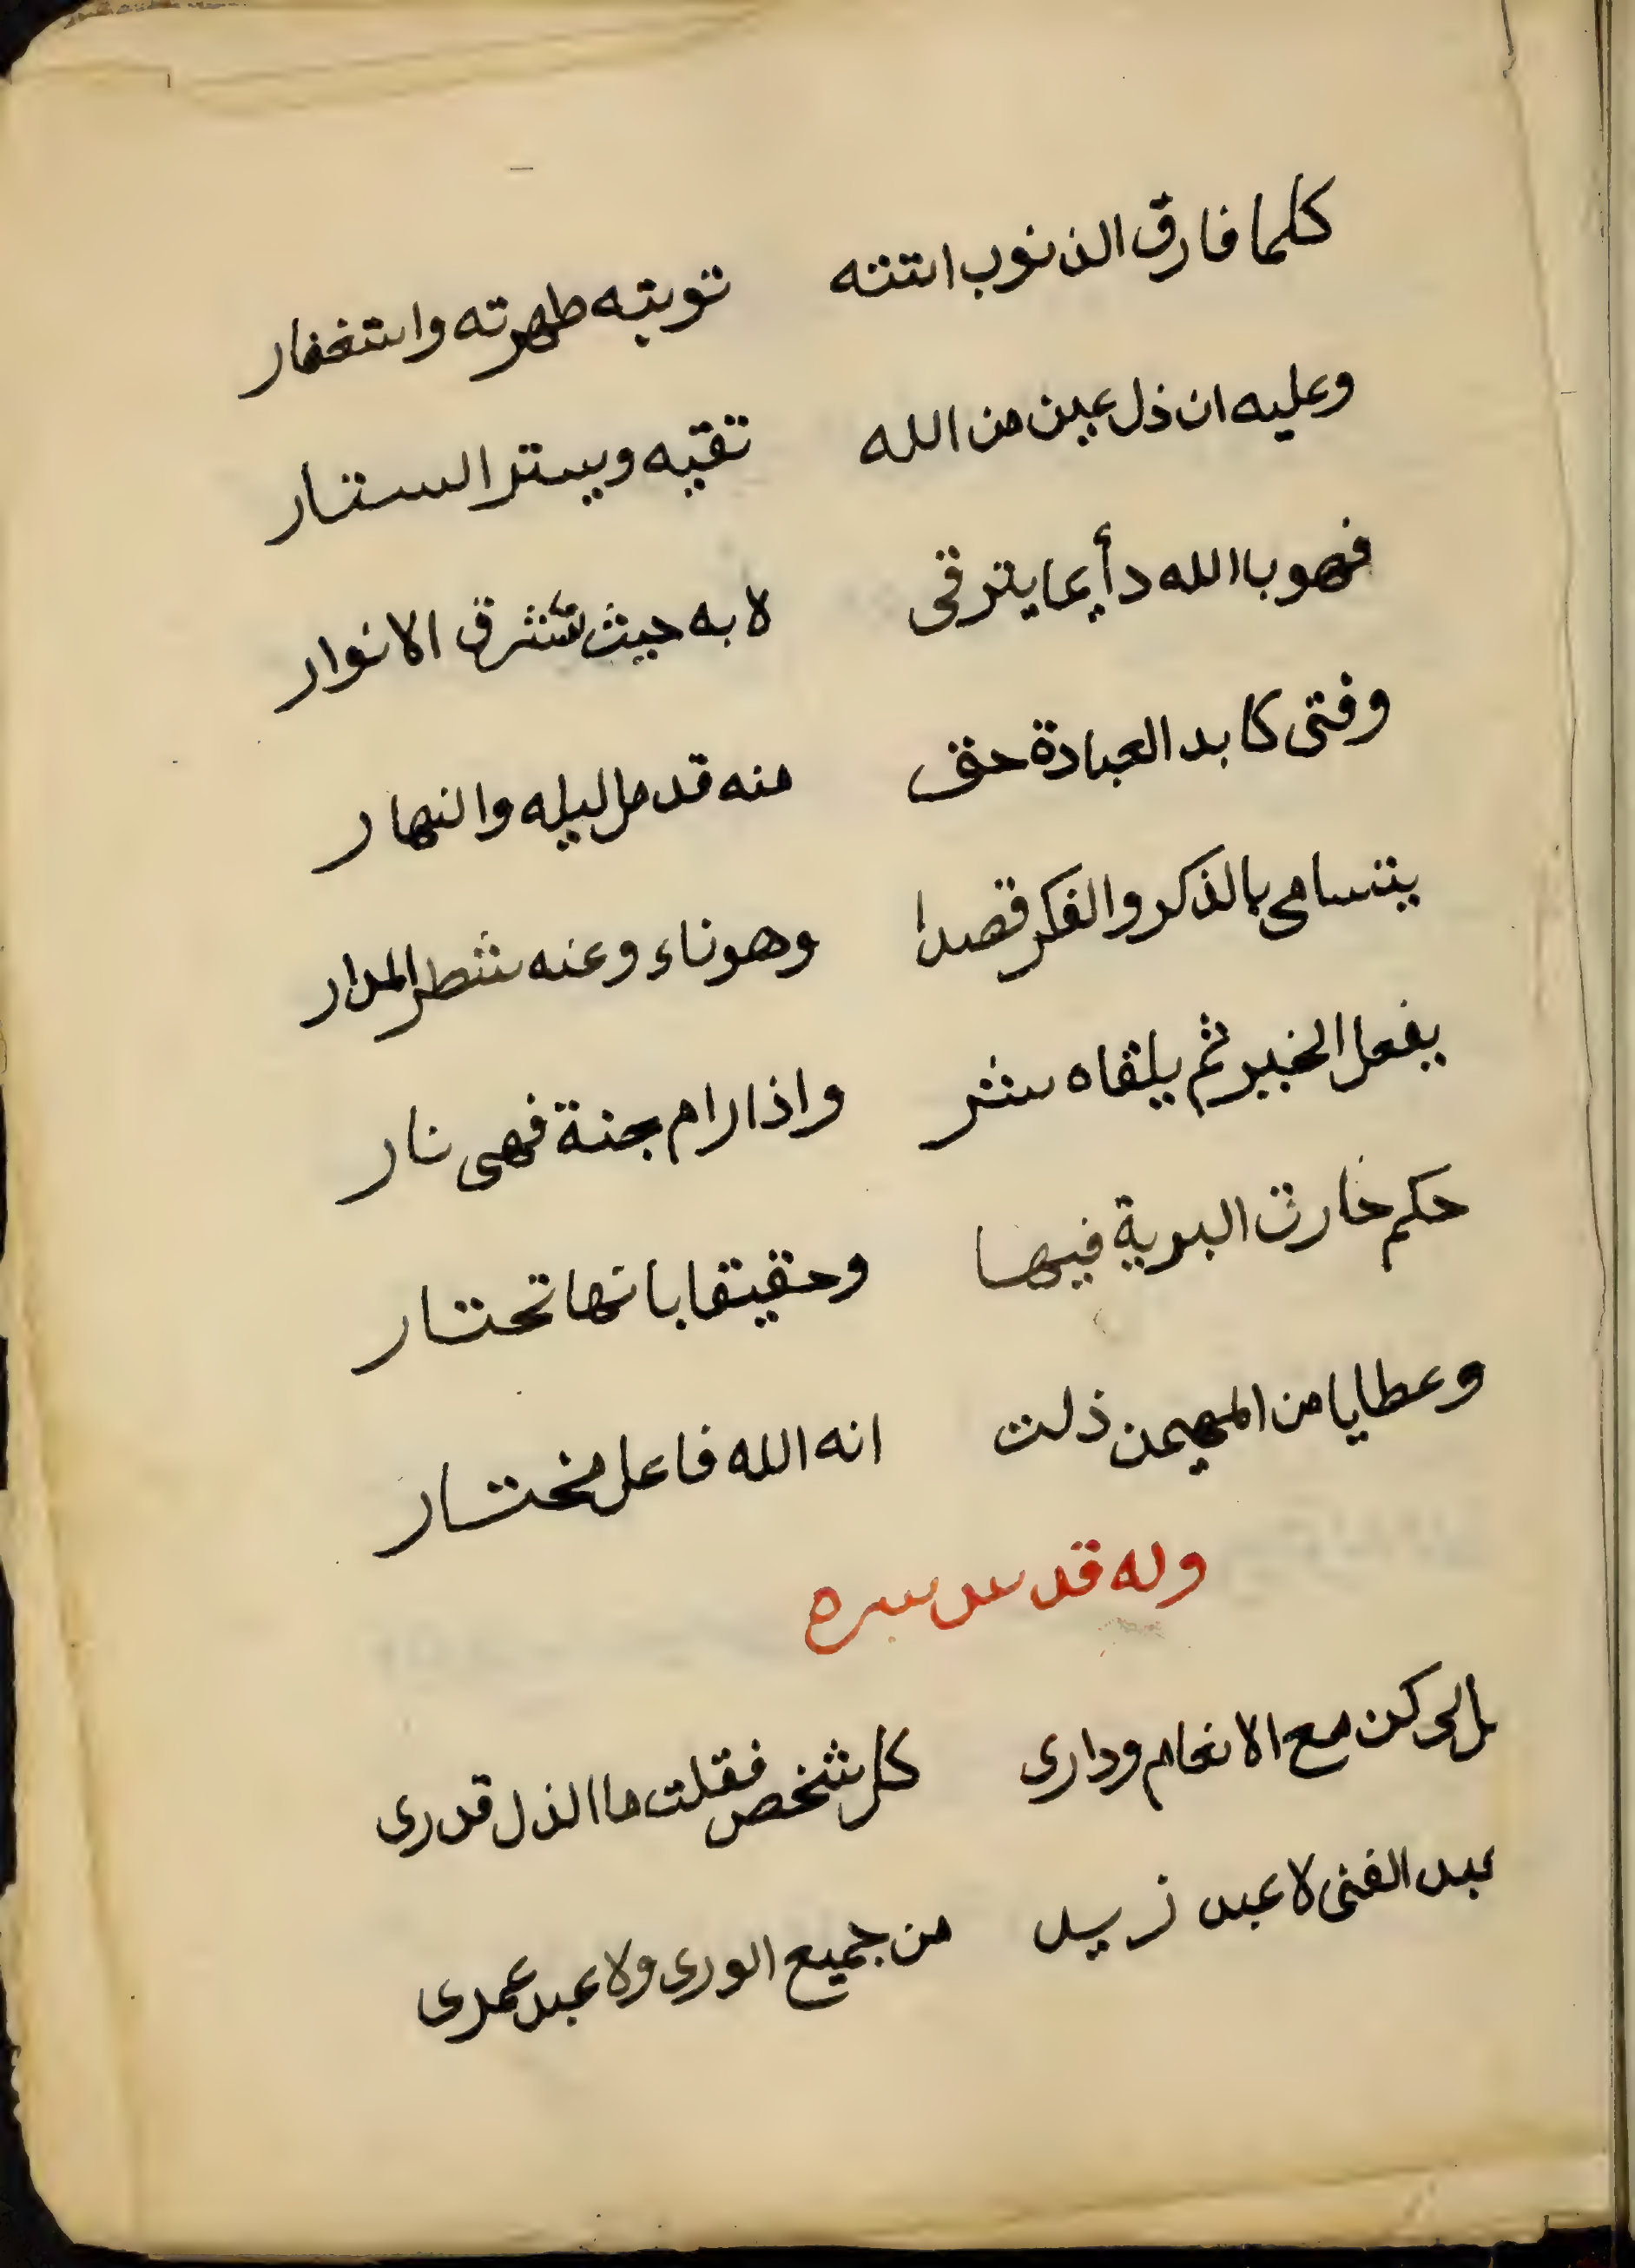 كلما فارق الذنوب اتته توبته طهرته واستغفار
وعليه ان ذل عين من الله تقيه ويستر الستار
فهو بالله دأيما يترقى لا به حيث تشرق الانوار
وفتى كابد العبادة حتى منه قد مل ليله والنهار
يتسامى بالذكر والفكر قصدا وهو ناء وعنه شط المدار
يفعل الخير ثم يلقاه شر واذا رام جنة فهى نار
حكم حارت البرية فيها وحقيقا بانها تحتار
وعطايا من المهيمن ذلت انه الله فاعل مختار
وله قدس سره
لى كن مع الانعام ودارى كل شخص فقلت ما الذل قدرى
عبد الغنى لا عبد زيد من جميع الورى ولا عبد عمرى